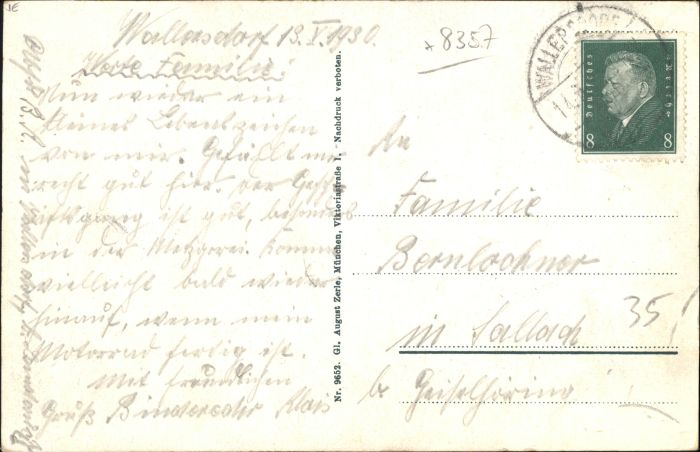 Wallersdorf 13.V.1930.
Werte Familie.
Nun wieder ein
kleines Lebenszeichen
von mir. Gefällt mir
recht gut hier. der Gesch
äftsgang ist gut, besonders
in der Metzgerei. Komme
vielleicht bald wieder
hinauf, wenn mein
Motorrad fertig ist.
Mit freundlichen
Gruß
Nr. 9652. Gl. August Zerle, München, Viktoriastraße 1. - Nachdruck verboten.
x 8357
WALLERSDORF
14.
Deutsches Reich
8 8
An
Familie
Bernlochner
in Sallach
35
b. Geiselhöring